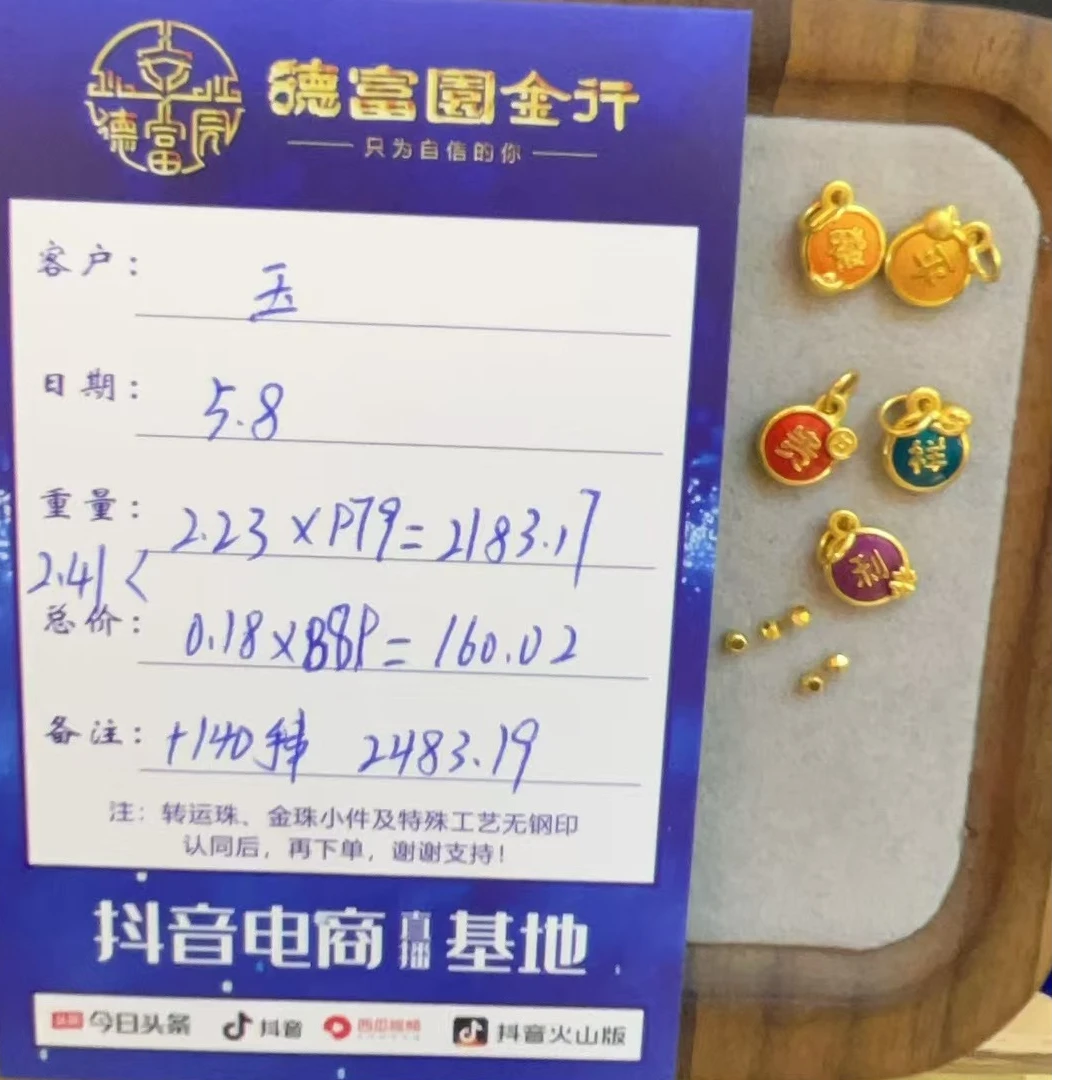 德富园
德富園金行
只为自信的你
客户： 玉
日期： 5.8
重量： 2.23×979=2183.17
2.41<
总价： 0.18×889=160.02
备注： +140 2483.19
注：转运珠、金珠小件及特殊工艺无钢印
认同后，再下单，谢谢支持！
抖音电商直播基地
头条 今日头条 抖音 西瓜视频 抖音火山版
祥
利